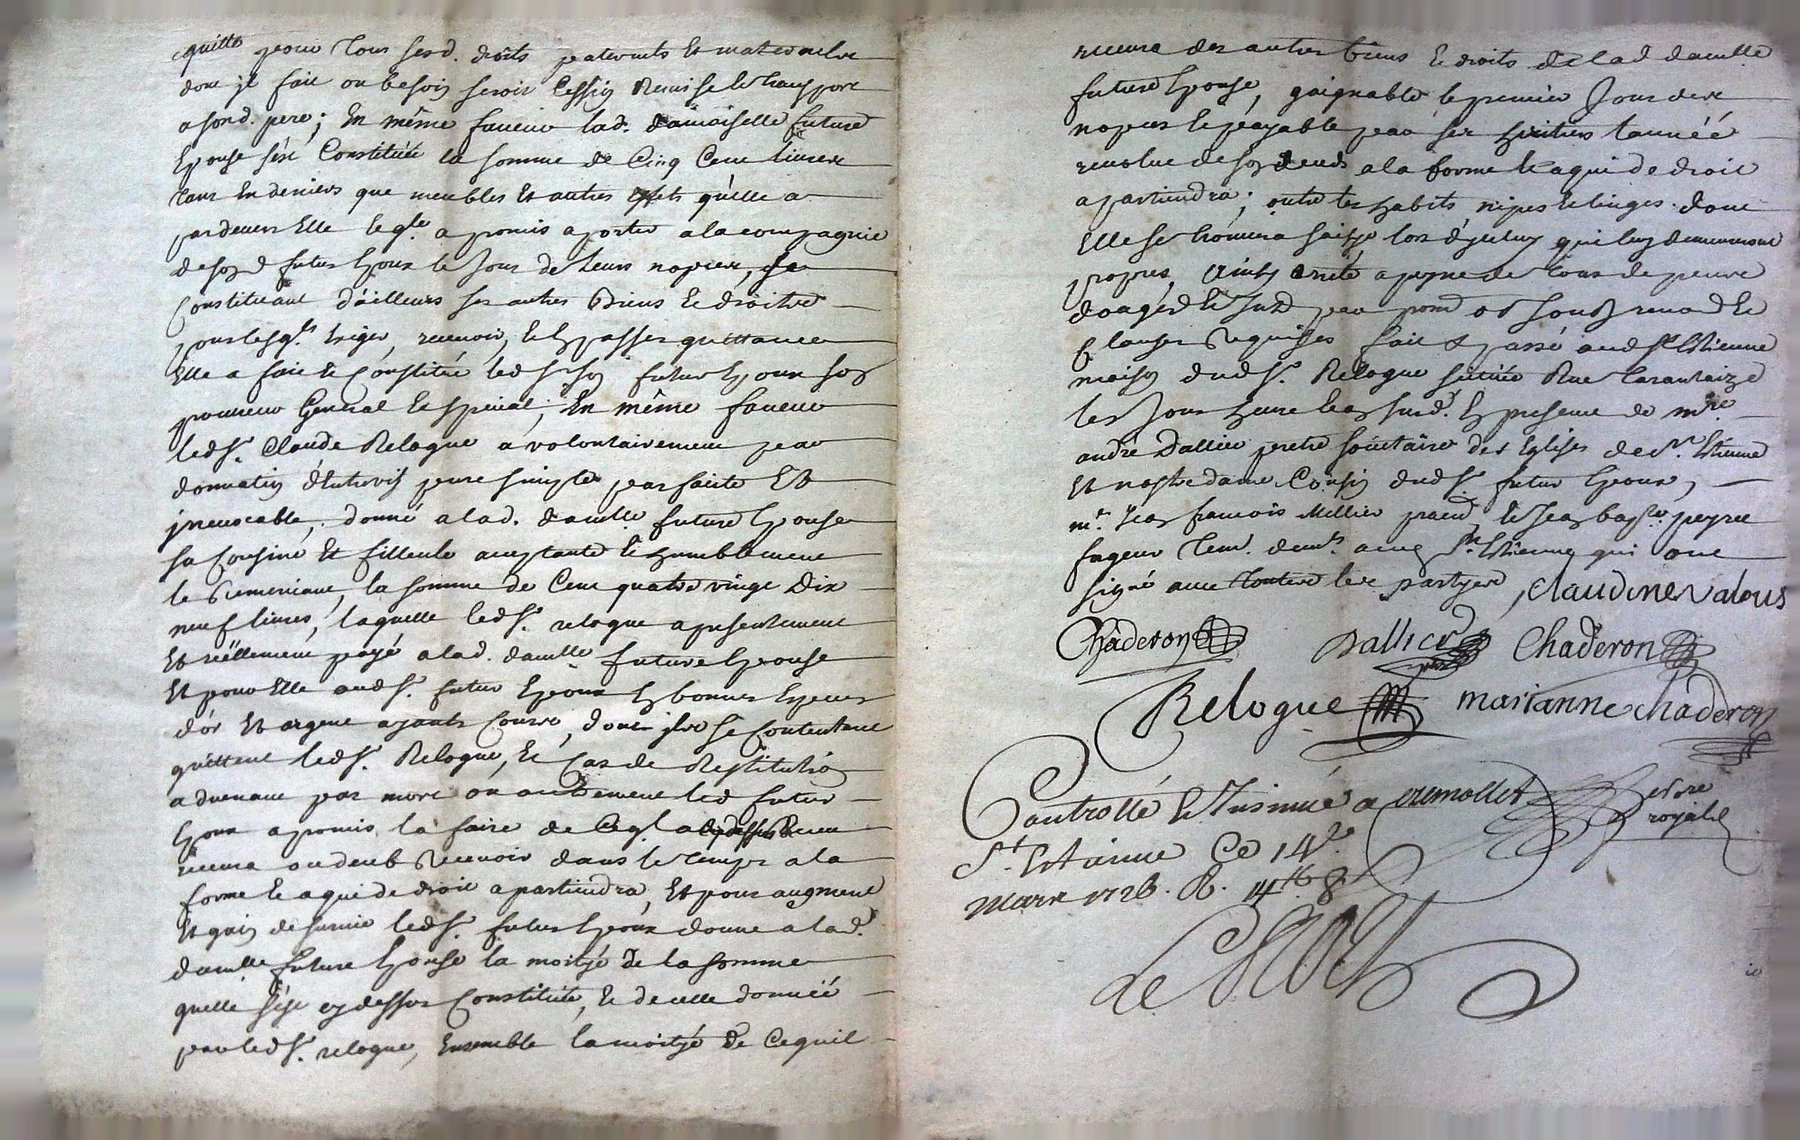 quitte pour tous sesd. droits paternels et maternelx
dont il fait ou besoin seroit cession Remise et transport
a sond. pere; En même faveur lad. damoiselle future
Epouse s'est Constituée la somme de Cinq Cent livres
tant En deniers que meubles et autres effets qu'elle a
pardevers Elle leqle a promis aporter a la compagnie
de son d futur Epoux le jour de leurs nopces, se
Constituant d'ailleurs ses autres Biens et droits
pour lesqls Exiger, recevoir, et En passer quittance
Elle a fait et Constitué led Sr son futur Epoux son
procureur General et special; En même faveur
led Sr. Claude Relogue a volontairement par
donnation d'Entrevifs pure simple parfaite Et
jrrevocable, donné a lad. damlle future Epouse
sa Cousine Et filleule acceptante et humblement
le Remerciant, la somme de Cent quatre vingt Dix
neuf livres, laquelle led Sr. relogue a presentement
Et réellement payé a lad. damlle future Epouse
Et pour Elle aud Sr. futur Epoux En bonnes Especes
d'or Et argent ayants Cours, dont ils se Contentent
quittent led Sr. Relogue, Et Cas de Restitution
advenant par mort ou autrement led futur
Epoux a promis la faire de Ce ql a
receu ou deub Recevoir dans le temps a la
forme Et a qui de droit apartiendra, Et pour augment
Et gain de survie led Sr. futur Epoux donne a lad.
damlle future Epouse la moitye de la somme
quelle s'est cy dessus Constituée, Et de celle donnée
par led Sr. relogue, Ensemble la moityé de Ce quil
recevra des autres biens Et droits de lad damlle
future Epouse, gaignable le premier Jour des
nopces Et payable par ses heritiers l'année
revolue de son deceds a la forme Et a qui de droit
apartiendra; outre les habits, nipes Et linges dont
Elle se trouvera saisye lors d'iceluy qui luy demeureront
propres, Ainsy arreté a peyne de tous depens
domages Et Int
Clauses Requises fait & passé aud St Estienne
maison dud Sr. Relogue scituée Rue tarantaize
les Jour heure Et an susd. En presence de mre
andré Dallier pretre societaire des Eglises de St. Estienne
Et nostre dame Cousin dud Sr futur Epoux,
mr. Jean francois Millier praticien, Et Jean bapte. peyre
forgeur Tem. demts. aud St Estienne qui ont
signé avec toutes les partyes, Claudine valous
Chaderon Dallier Chaderon
Relogue marianne chaderon
Controllé Et Insinué a crumollet notre
St Estienne Ce 14e royal
Mars 1726. R. 14 tt 8 s